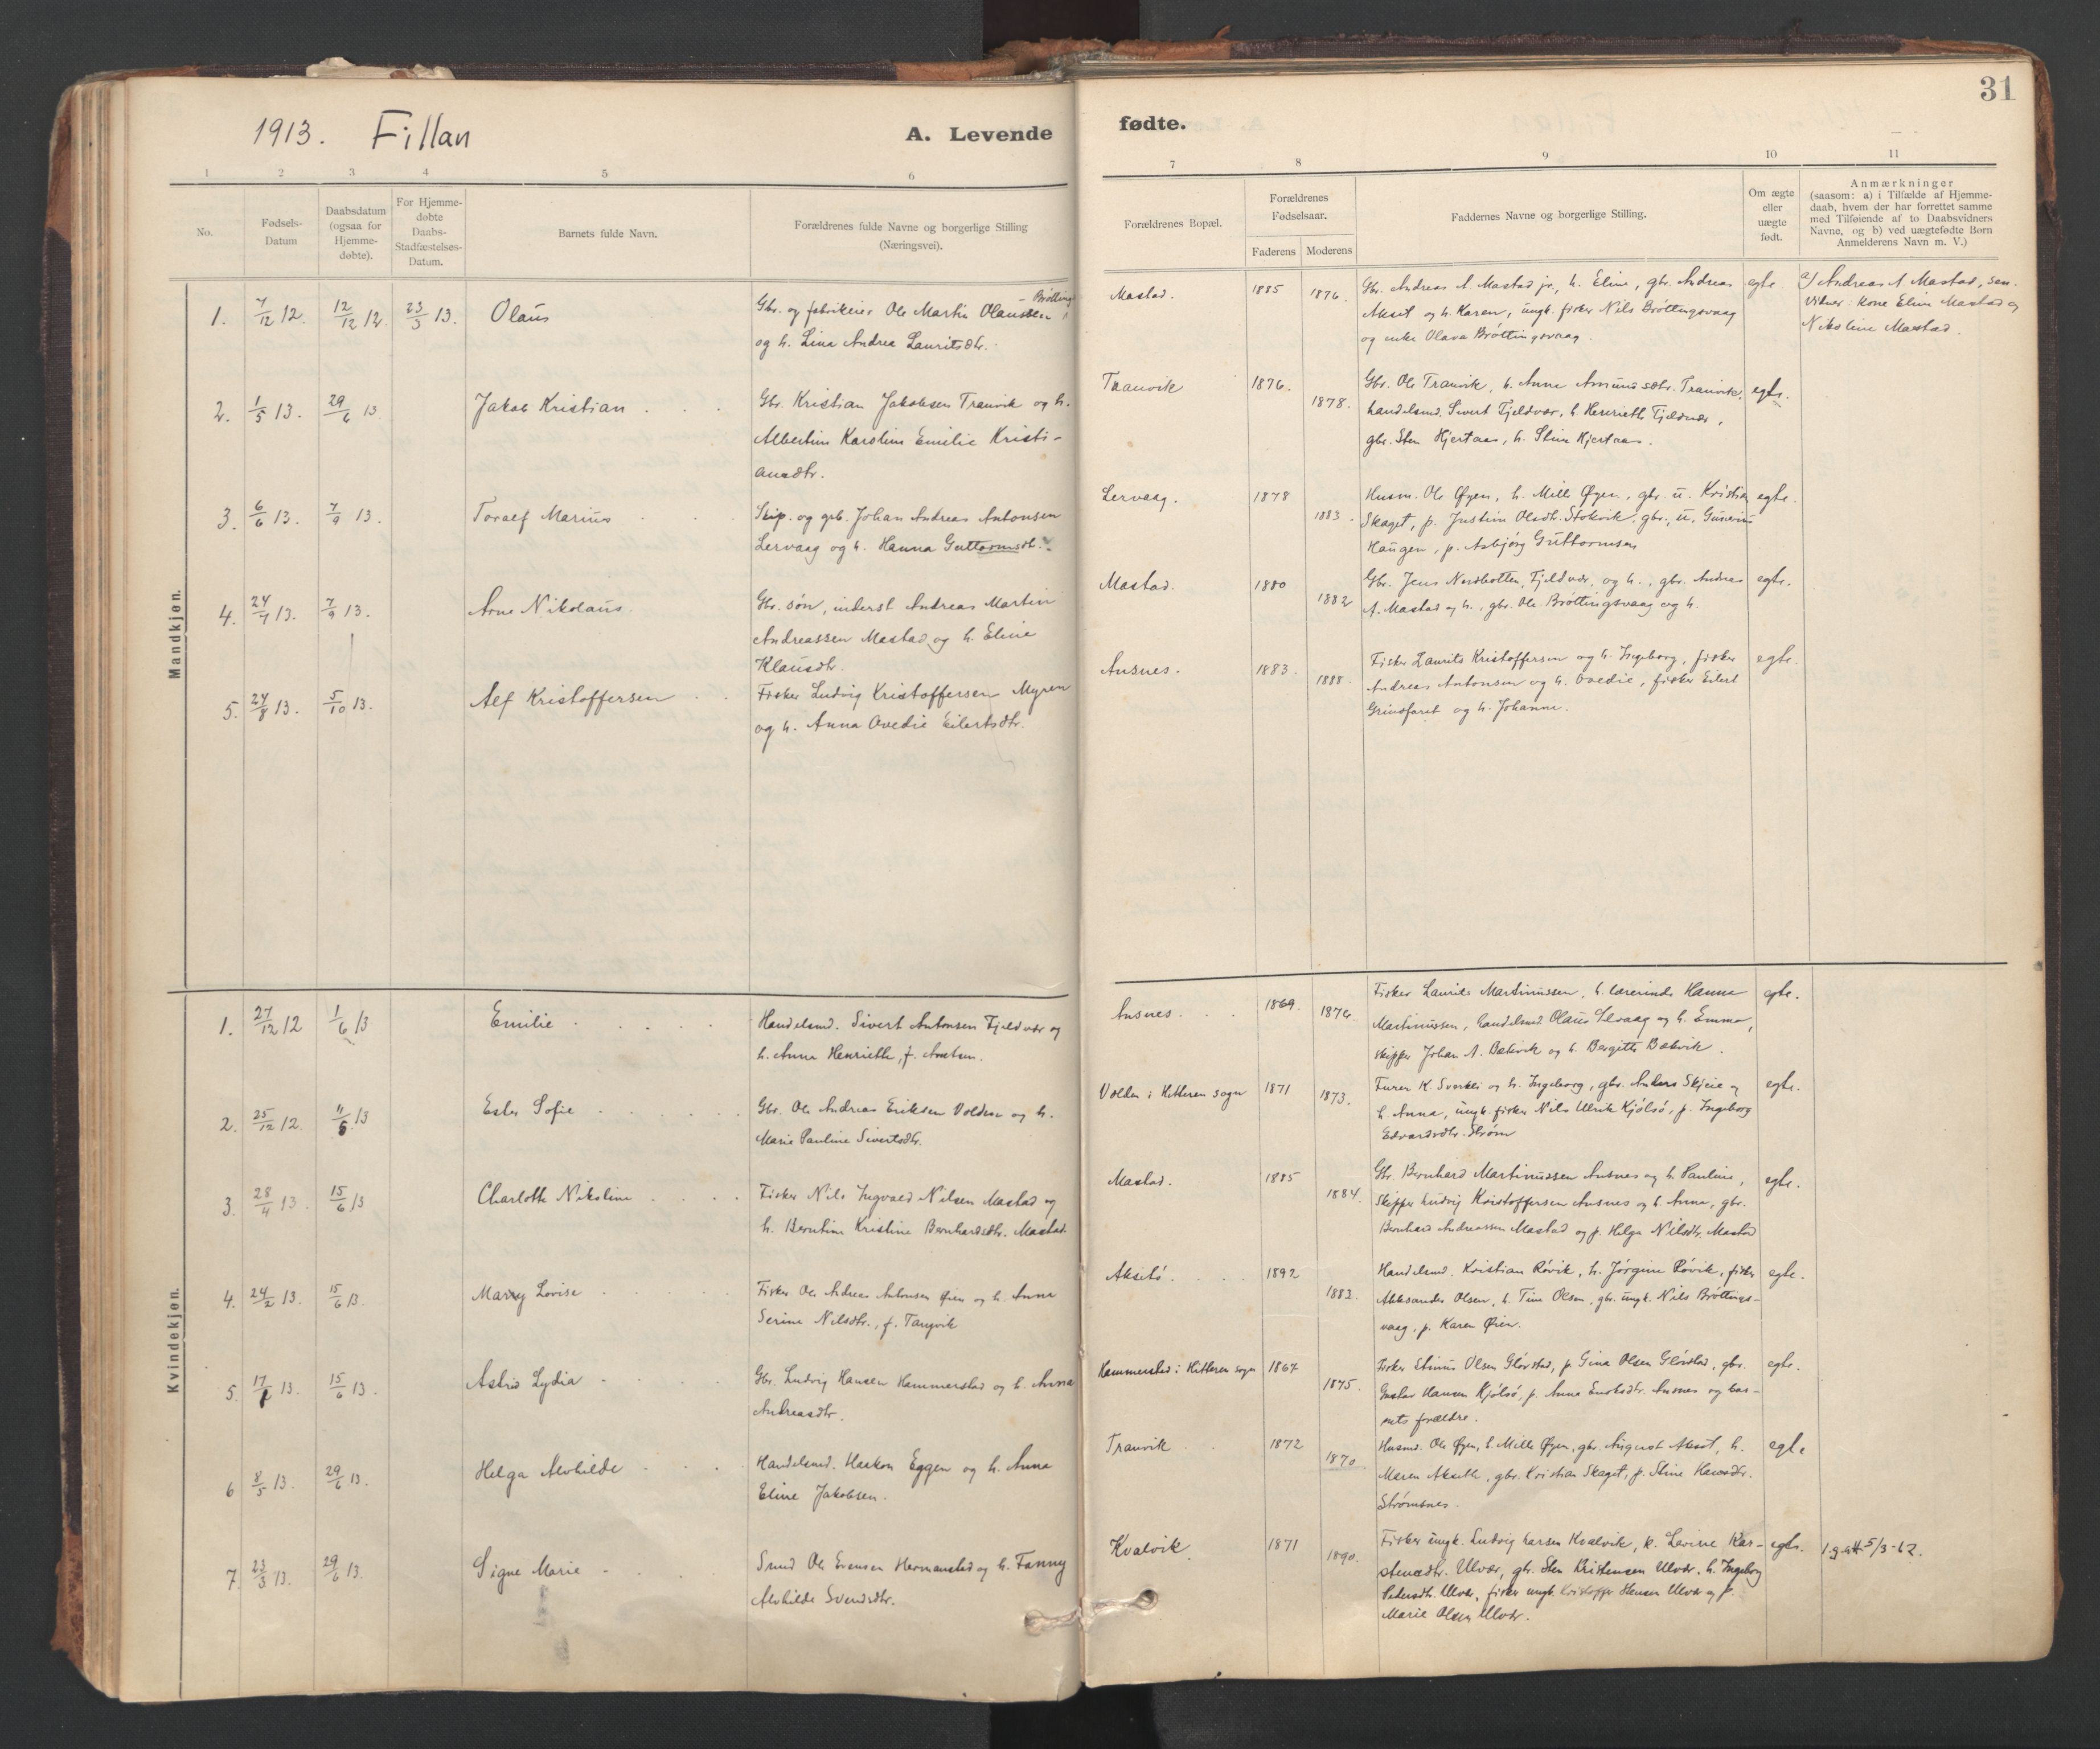 31
1913. Fillan
A. Levende
fødte.
1 2 3 4 5 6
7 8 9 10 11
No.
Fødsels-
Datum
Daabsdatum
(ogsaa for
Hjemme-
døbte).
For Hjemme-
døbte
Daabs-
Stadfæstelses-
Datum.
Barnets fulde Navn.
Forældrenes fulde Navne og borgerlige Stilling
(Næringsvei).
Forældrenes Bopæl.
Forældrenes
Fødselsaar.
Faderens Moderens
Faddernes Navne og borgerlige Stilling.
Om ægte
eller
uægte
født.
Anmærkninger
(saasom: a) i Tilfælde af Hjemme-
daab, hvem der har forrettet samme
med Tilføiende af to Daabsvidners
Navne, og b) ved uægtefødte Børn
Anmelderens Navn m. V.)
Mandkjøn.
1. 7/12 12. 12/12 12. 23/3 13. Olaus
Gbr. og fabrikeier Ole Martin Olaussen - Brötting
og h. Lina Andrea Lauritsdtr.
Mastad. 1885 1876.
Gbr. Andreas A Mastad jr., h. Eline, gbr. Andreas
Akset og h. Karen, ungk. fisker Nils Bröttingsvaag
og enke Olava Bröttingsvaag.
egte
a) Andreas A Mastad, sen.
Vidner: Kone Eline Mastad og
Nikoline Mastad.
2. 1/5 13. 29/6 13 Jakob Kristian
Gbr. Kristian Jakobsen Tranvik og h.
Albertine Karoline Emilie Kristi-
ansdtr.
Tranvik 1876. 1878.
Gbr. Ole Tranvik, h. Anne Amundsdtr. Tranvik,
handelsmd. Sivert Fjeldvær, h. Henriette Fjeldvær,
gbr. Sten Hjertaas, h. Stine Hjertaas.
egte.
3. 6/6 13. 7/9 13. Toralf Marius
Skip. og grb. Johan Andreas Antonsen
Lervaag og h. Hanna Guttormsdtr.
Lervaag. 1878 1883.
Husm. Ole Øyen, h. Mille Øyen, gbr. u. Kristian
Skaget, p. Justine Olsdtr. Stokvik, gbr., u. Gunerius
Haugen, p. Asbjørg Guttormsen
egte.
4. 24/7 13. 7/9 13. Arne Nikolaus
Gbr. søn, inderst Andreas Martin
Andreassen Mastad og h. Eline
Klausdtr.
Mastad. 1880 1882
Gbr. Jens Nordbotten, Fjeldvær, og h., gbr. Andreas
A. Mastad og h., gbr. Ole Bröttingsvaag og h.
egte.
5. 24/8 13. 5/10 13. Alf Kristoffersen
Fisker Ludvig Kristoffersen Myren
og h. Anna Ovedie Eilertsdtr.
Ansnes. 1883. 1888.
Fisker Laurits Kristoffersen og h. Ingeborg, fisker
Andreas Antonsen og h. Ovedie, fisker Eilert
Grindfaret og h. Johanne.
egte.
Kvindekjøn.
1. 27/12 12 1/6 13 Emilie
Handelsmd. Sivert Antonsen Fjeldvær og
h. Anna Henriette, f.
Ansnes. 1869. 1876.
Fisker Laurits Martinussen, h. lærerinde Hanna
Martinussen, handelsmd. Olaus Selvaag og h. Emma,
skipper Johan A. Bækvik og h. Bergitte Bækvik.
egte.
2. 25/12 12. 11/5 13 Ester Sofie
Gbr. Ole Andreas Eriksen Volden og h.
Marie Pauline Sivertsdtr.
Volden i Hitteren sogn 1871 1873.
Furer K. Sverkli og h. Ingeborg, gbr. Anders Skjeie og
h. Anna, ungk. fisker Nils Ulrik Kjölsö, p. Ingeborg
Edvardsdtr. Ström
egte.
3. 28/4 13. 15/6 13 Charlotte Nikoline
Fisker Nils Ingvald Nilsen Mastad og
h. Berntine Kristine Bernhardsdtr. Mastad.
Mastad. 1885 1884.
Gbr. Bernhard Martinussen Ansnes og h. Pauline,
Skipper Ludvig Kristoffersen Ansnes og h. Anna, gbr.
Bernhard Andreassen Mastad og p. Helga Nilsdtr. Mastad
egte.
4. 24/2 13. 15/6 13. Marry Lovise
Fisker Ole Andreas Antonsen Øien og h. Anna
Serine Nilsdtr., f. Tangvik
Aksetö. 1892 1883.
Handelsmd. Kristian Rövik, h. Jörgine Rövik, fisker
Aleksander Olsen, h. Tine Olsen, gbr. ungk. Nils Bröttings-
vaag, p. Karen Øien.
egte.
5. 17/ 13. 15/6 13. Astrid Lydia
Gbr. Ludvig Hansen Hammerstad og h. Anna
Andreasdtr.
Hammerstad i Hitteren sogn 1867 1875.
Fisker Stinus Olsen Glörstad, p. Gina Olsen Glörstad, gbr.
Gustav Hansen Kjölsö, p. Anna Enoksdtr. Ansnes og bar-
nets forældre.
egte.
6 8/5 13. 29/6 13. Helga Alvhilde
Handelsmd. Haakon Eggen og h. Anna
Eline Jakobsen.
Tranvik 1872 1870.
Husmd. Ole Øyen, h. Mille Øyen, gbr. August Akset, h.
Maren Aksett, gbr. Kristian Skaget, p. Stine
Strömsnes.
egte
7. 23/3 13. 29/6 13. Signe Marie
Smed Ole Evensen Hermanstad og h. Fanny
Alvhilde Svendsdtr.
Kvalvik 1871 1890.
Fisker ungk. Ludvig Larsen Kvalvik, p. Lavine Kar-
stensdtr. Ulvær, gbr. Sten Kristensen Ulvær, h. Ingeborg
Pedersdtr. Ulvær, fisker ungk. Kristoffer Stensen Ulvær og p.
Marie Olsen Ulvær.
egte. 1.g.att 5/3-62.